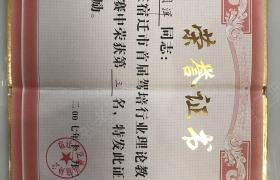 荣誉证书
同志:
宿迁市首届驾培行业理论教
赛中荣获第三名,特发此证
励。
二00七年十二月